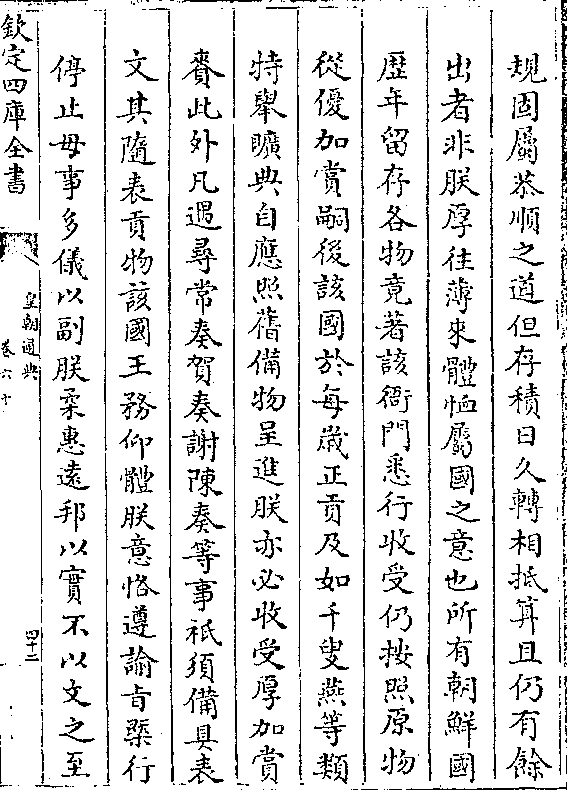 規固屬恭順之道但存積日久轉相抵算且仍有餘
出者非朕厚往薄來體恤屬國之意也所有朝鮮國
歴年留存各物竟著該衙門悉行收受仍按照原物
從優加賞嗣後該國於每歳正貢及如千叟燕等類
特舉曠典自應照舊備物呈進朕亦必收受厚加賞
賚此外凡遇尋常奏賀奏謝陳奏等事祇須備具表
文其隨表貢物該國王務仰體朕意恪遵諭旨槩行
停止毋事多儀以副朕柔惠遠邦以實不以文之至
欽定四庫全書
皇朝通典
卷六十
四十二